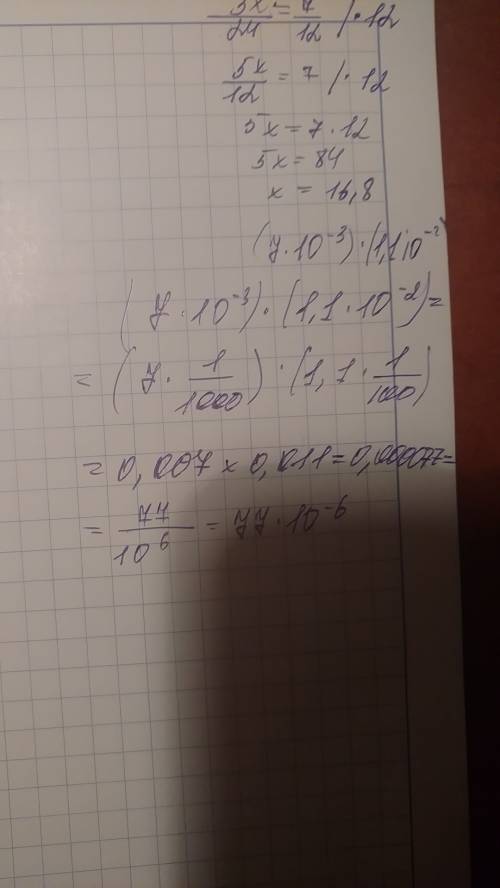 5x/24 = 7/12 /·12
5x/12 = 7 /·12
5x = 7·12
5x = 84
x = 16,8
(7·10⁻³)·(1,1·10⁻²)
(7·10⁻³)·(1,1·10⁻²)=
= (7·1/1000)·(1,1·1/100)
= 0,007 × 0,011 = 0,000077=
= 77/10⁶ = 77·10⁻⁶